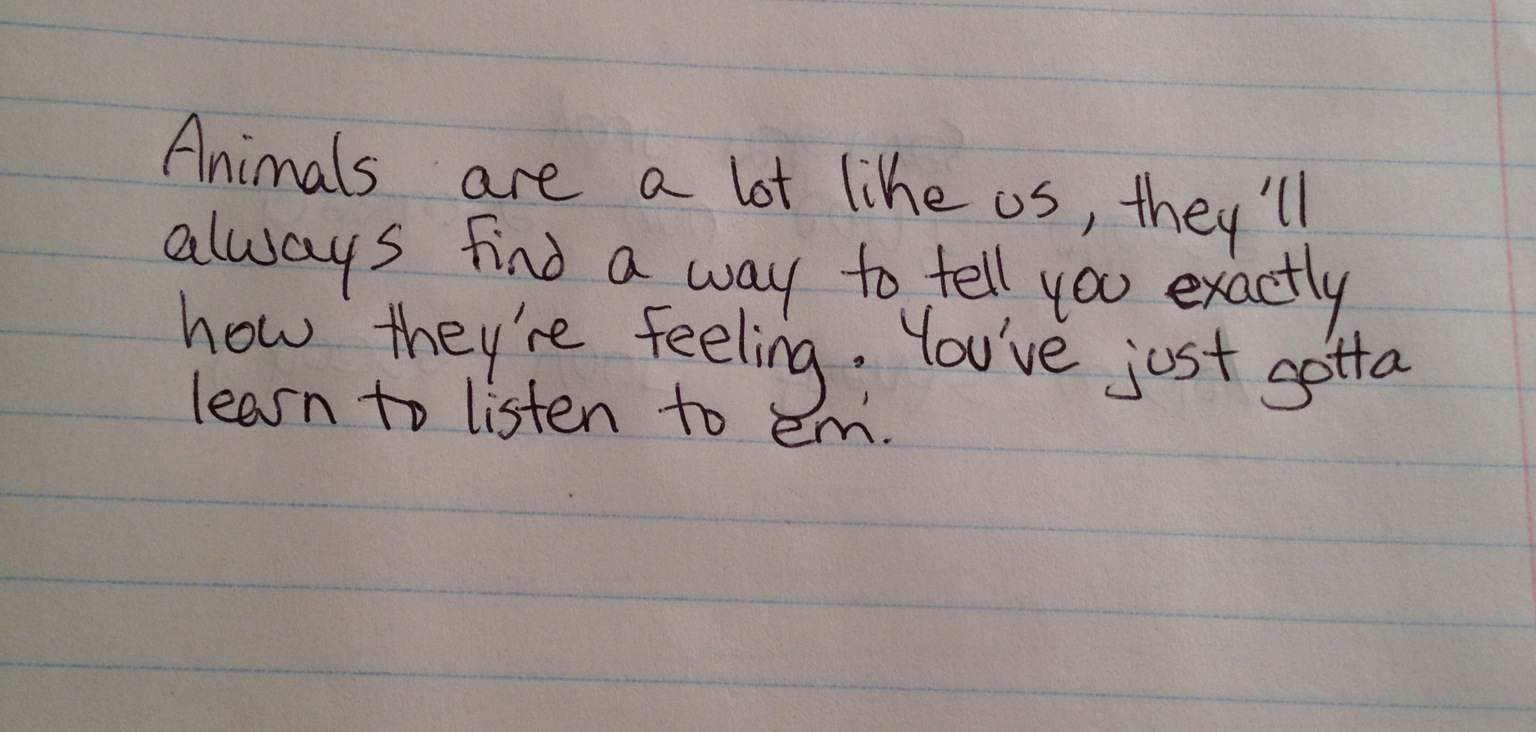 Animals are a lot like us, they'll
always find a way to tell you exactly
how they're feeling. You've just gotta
learn to listen to em'.